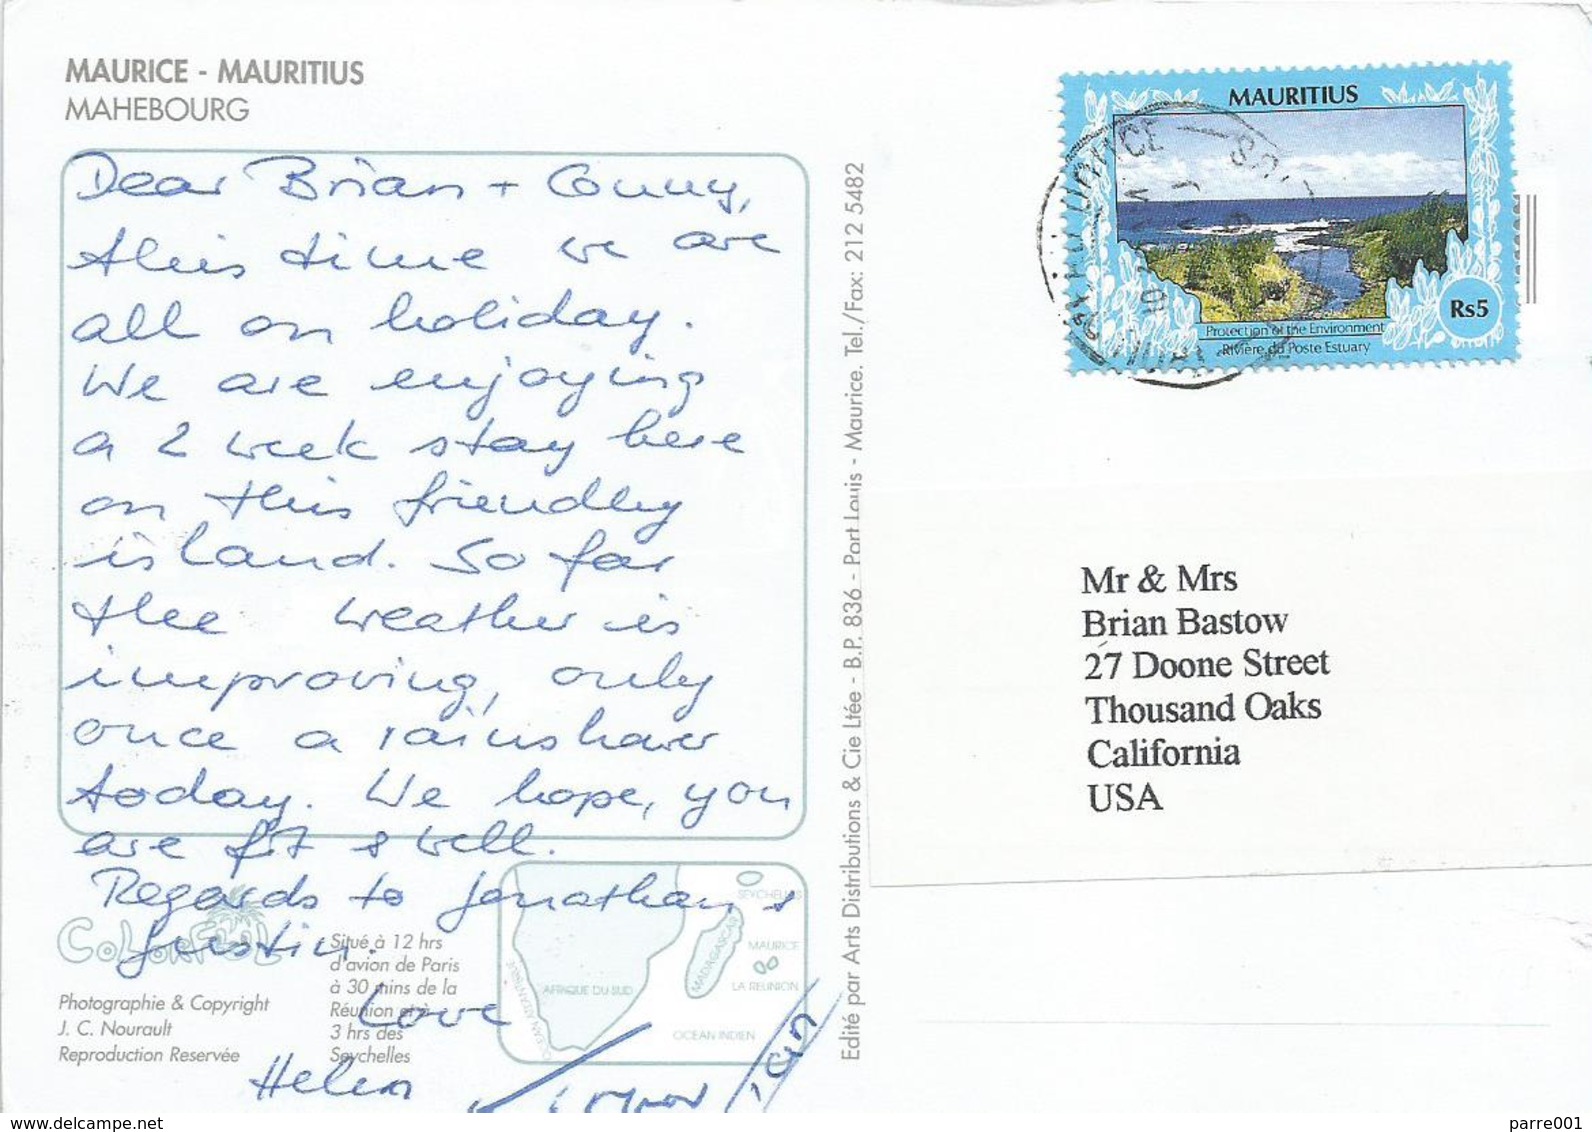 MAURICE - MAURITIUS
MAHEBOURG
Dear Brian + Conny,
this time we are
all on holiday.
We are enjoying
a 2 week stay here
on this friendly
island. So far
the weather is
improving, only
once a rainshower
today. We hope, you
are fit & well.
Regards to Jonathan &
Justin.
Love
Helen
COLORFUL
Photographie & Copyright
J. C. Nourault
Reproduction Reservée
Situé à 12 hrs
d'avion de Paris
à 30 mins de la
Réunion et à
3 hrs des
Seychelles
SEYCHELLES
MADAGASCAR
MAURICE
LA REUNION
AFRIQUE DU SUD
OCEAN ATLANTIQUE
OCEAN INDIEN
Edité par Arts Distributions & Cie Ltée - B.P. 836 - Port Louis - Maurice. Tel./Fax: 212 5482
MAURITIUS
Rs5
Protection of the Environment
Rivière du Poste Estuary
Mr & Mrs
Brian Bastow
27 Doone Street
Thousand Oaks
California
USA
delcampe.net
parre001